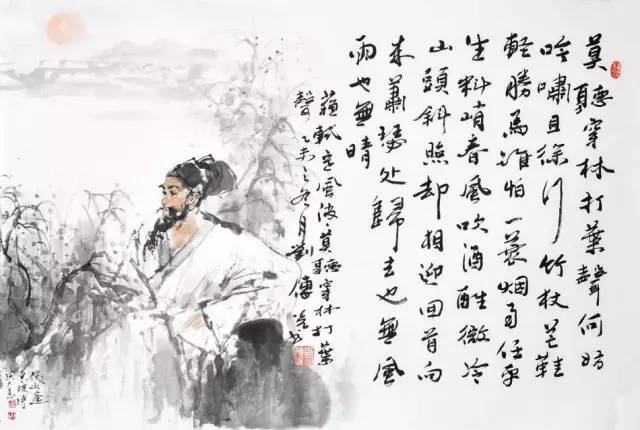 莫聽穿林打葉聲何妨
吟嘯且徐行竹杖芒鞋
輕勝馬誰怕一蓑烟雨任平
生料峭春風吹酒醒微冷
山頭斜照却相迎回首向
來蕭瑟处歸去也無風
雨也無晴
蘇軾定風波莫聽穿林打葉
聲乙未之冬月劉傳书